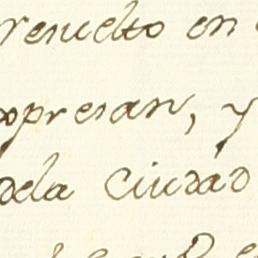 resuelto en
xpresan, y
dela Ciudad